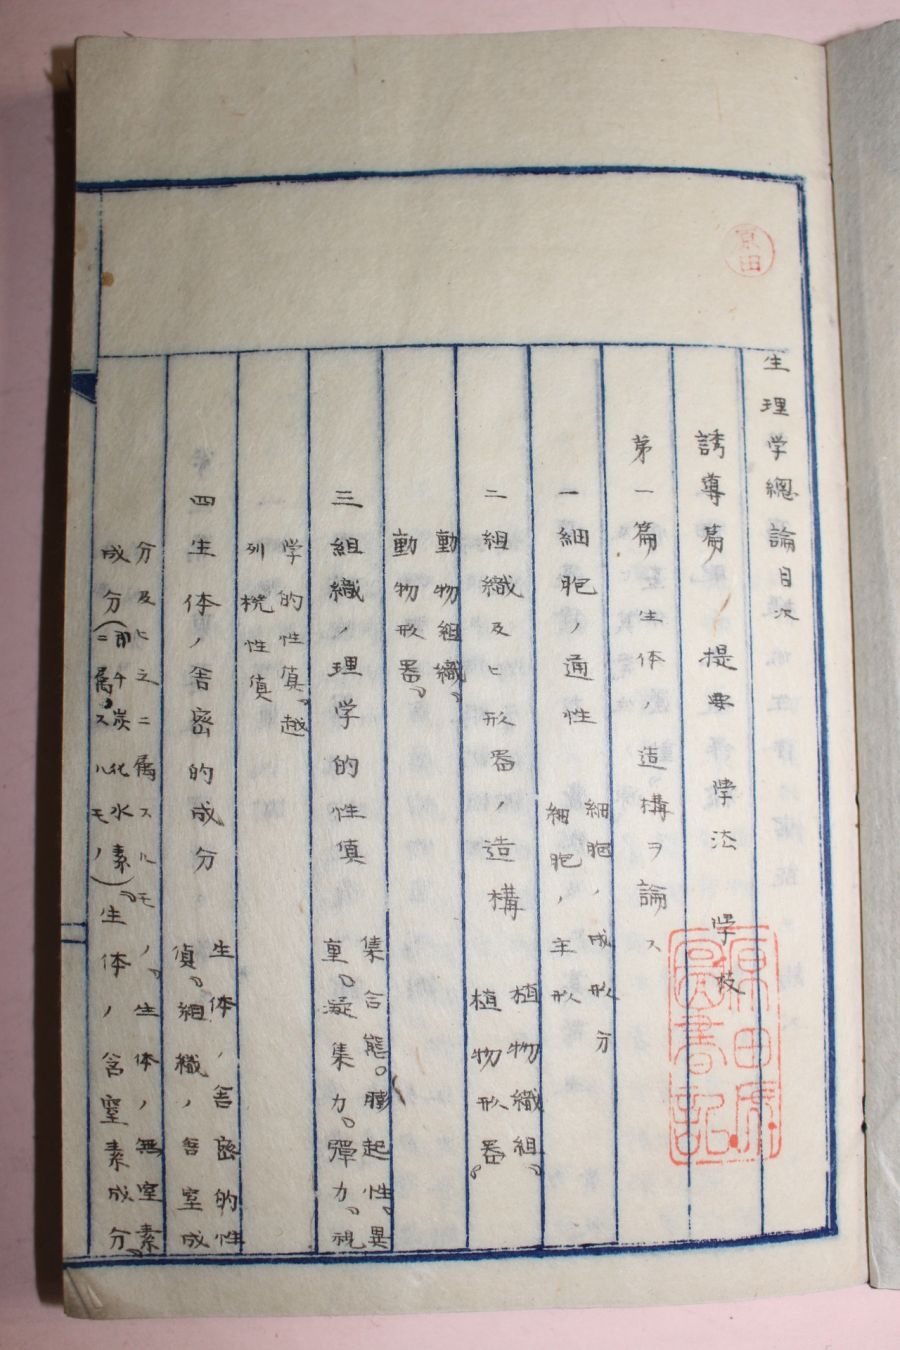 生理学總論目次
誘導篇 提要 学法 学校
第一篇 生体ノ造構ヲ論ス
一 細胞ノ通性
細胞ノ成形分
細胞ノ主形
二 組織及ヒ形器ノ造構
植物織組、
植物形器、
動物組織、
動物形器、
三 組織ノ理学的性質
集合態。膨起性、異
重。凝集力。彈力、視
学的性質。越
列機性質
四 生体ノ舎密的成分
生体ノ舎密的性
質。組織ノ含窒成
分及ヒ之ニ属スルモノ、生体ノ無窒素
成分(前ニ属スハモノ)生体ノ含窒素成分、
京田